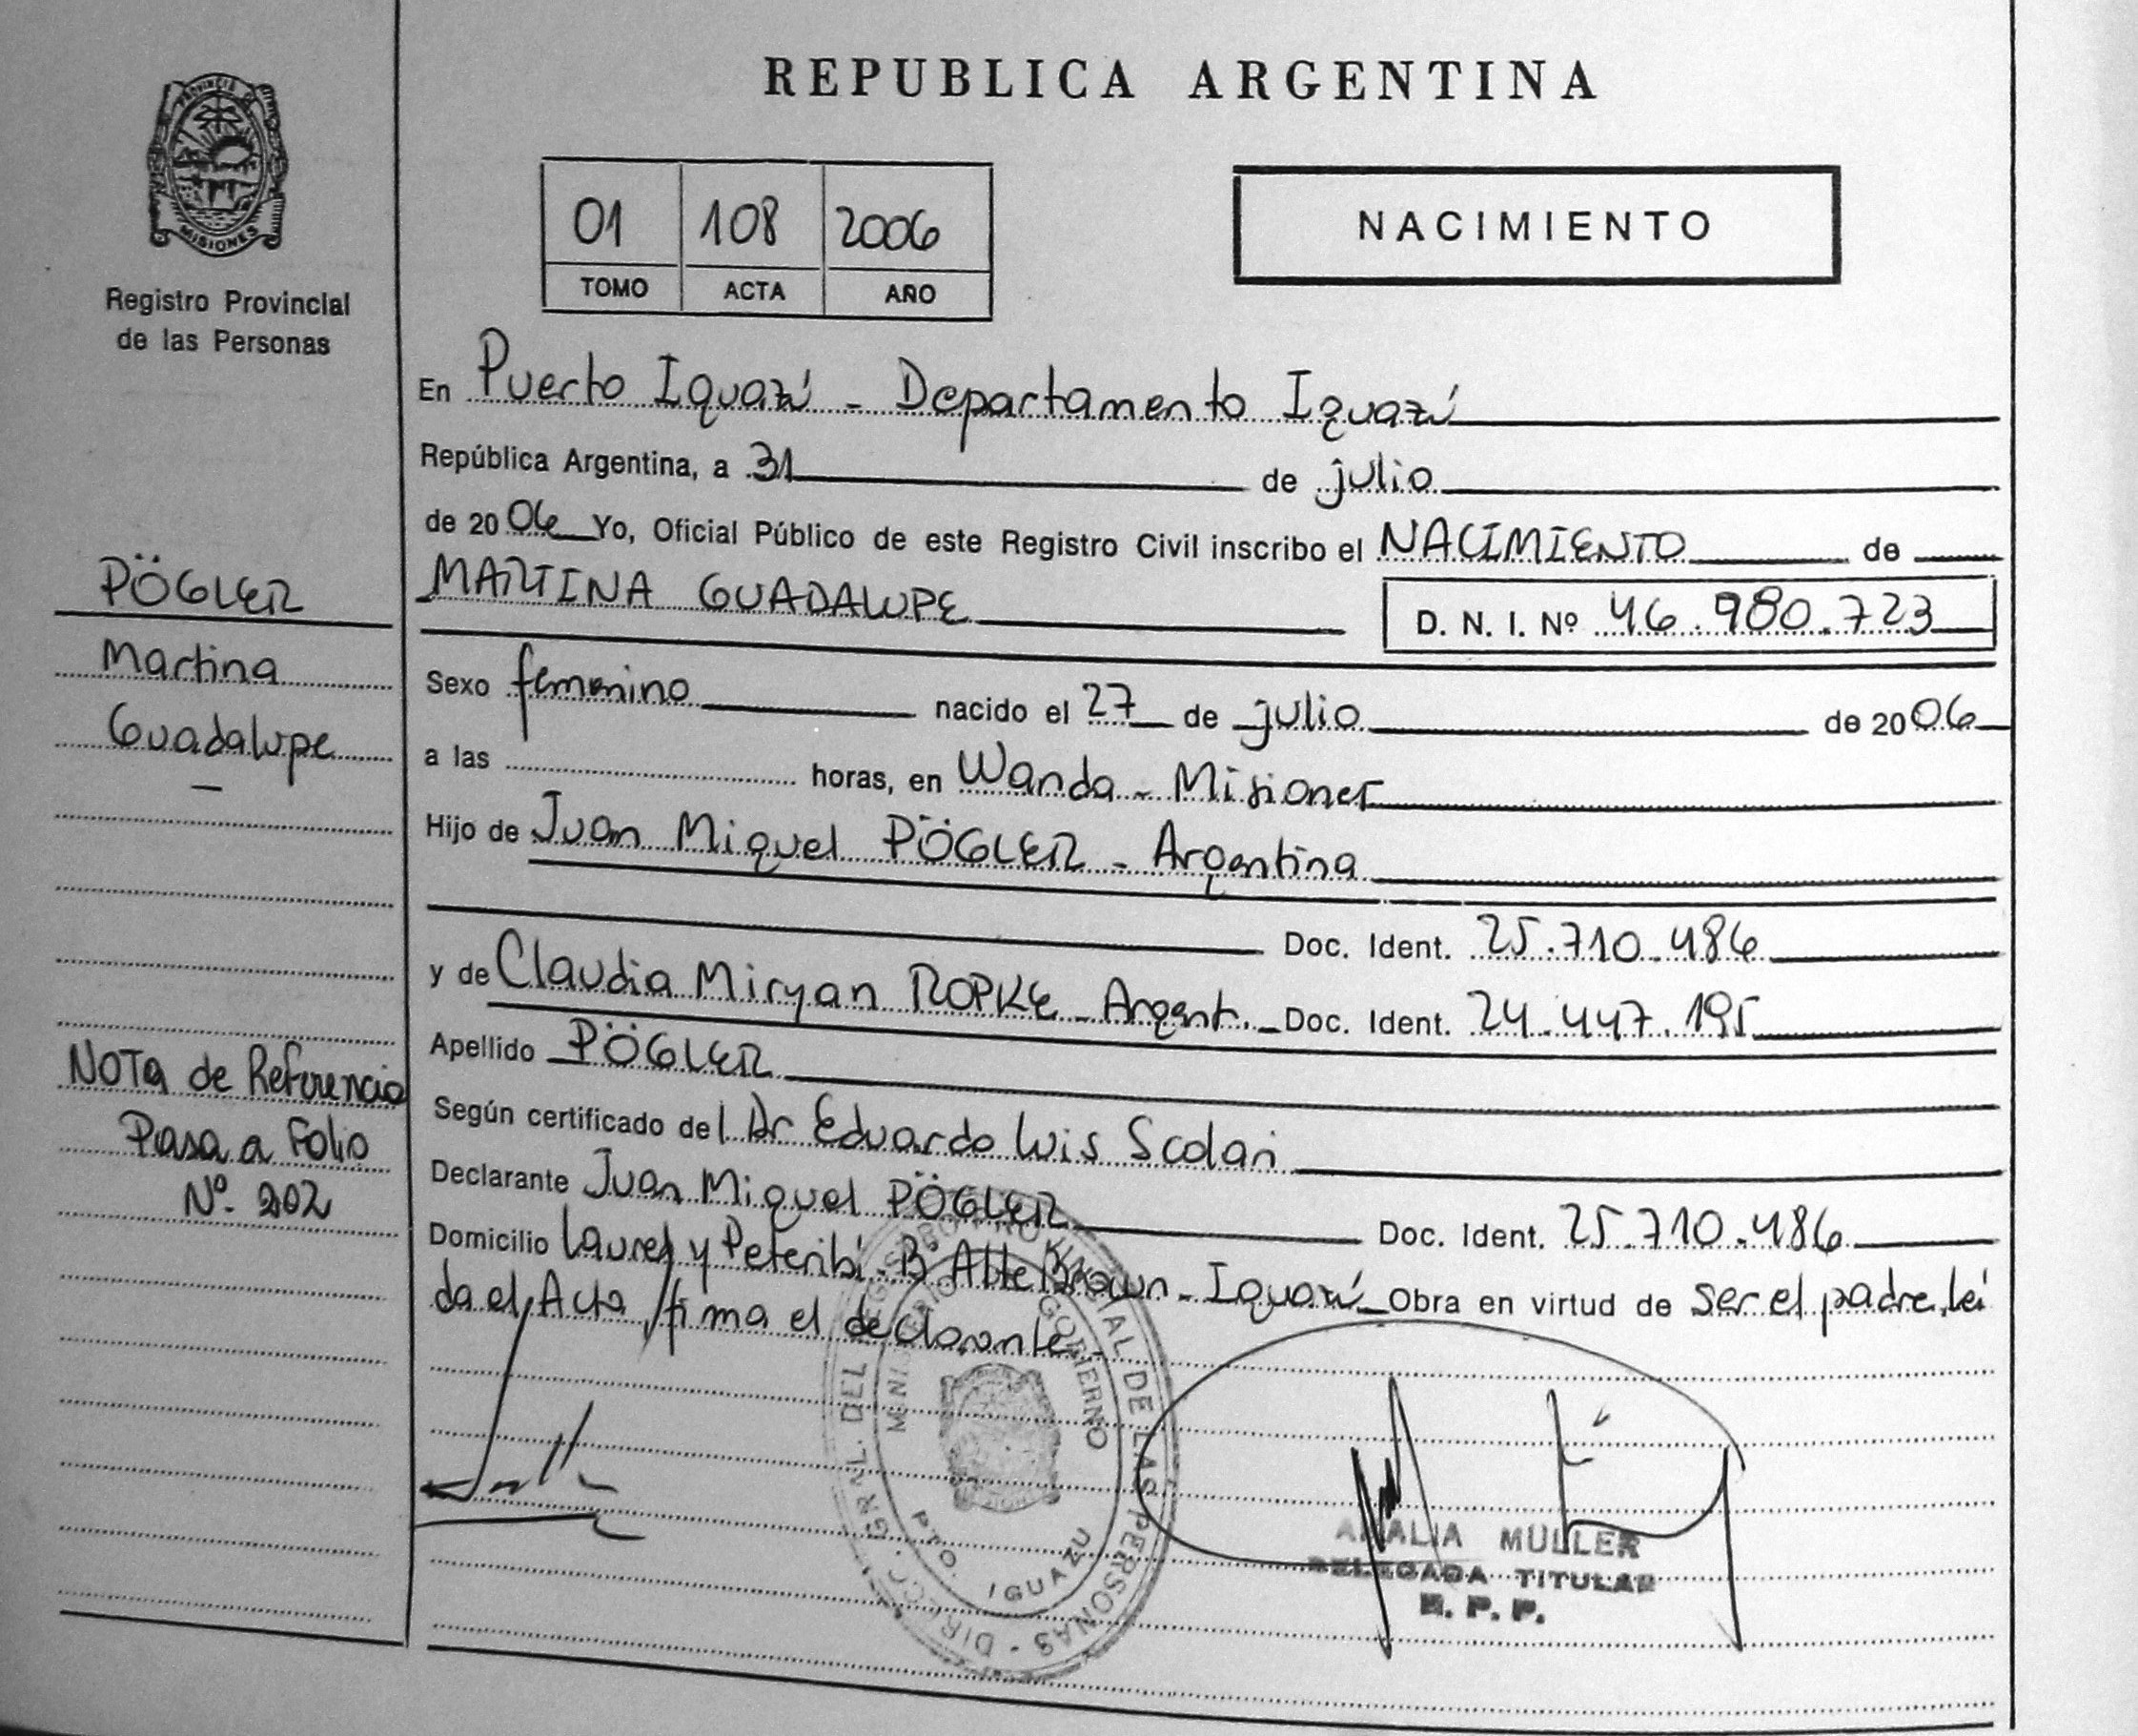 REPUBLICA ARGENTINA
PROVINCIA DE
MISIONES
Registro Provincial
de las Personas
01 108 2006
TOMO ACTA AÑO
NACIMIENTO
En Puerto Iguazú - Departamento Iguazú
República Argentina, a 31 de julio
de 2006 Yo, Oficial Público de este Registro Civil inscribo el NACIMIENTO de
MARTINA GUADALUPE D. N. I. Nº 46.980.723
PÖGLER
Martina
Guadalupe
Sexo femenino nacido el 27 de julio de 2006
a las horas, en Wanda - Misiones
Hijo de Juan Miguel PÖGLER - Argentina
Doc. Ident. 25.710.486
y de Claudia Miryan ROPKE - Argent. - Doc. Ident. 24.447.195
Apellido PÖGLER
NOTa de Referencia
Pasa a Folio
Nº 202
Según certificado del Dr Eduardo Luis Scolari
Declarante Juan Miguel PÖGLER Doc. Ident. 25.710.486
Domicilio Laurel y Peteribí - Bº Alte Brown - Iguazú Obra en virtud de ser el padre, leí
da el Acta, firma el declarante.-
DIRECC. GRAL. DEL REGISTRO PROVINCIAL DE LAS PERSONAS
MINISTERIO DE GOBIERNO
PTO. IGUAZU
AMALIA MULLER
DELEGADA TITULAR
R. P. P.